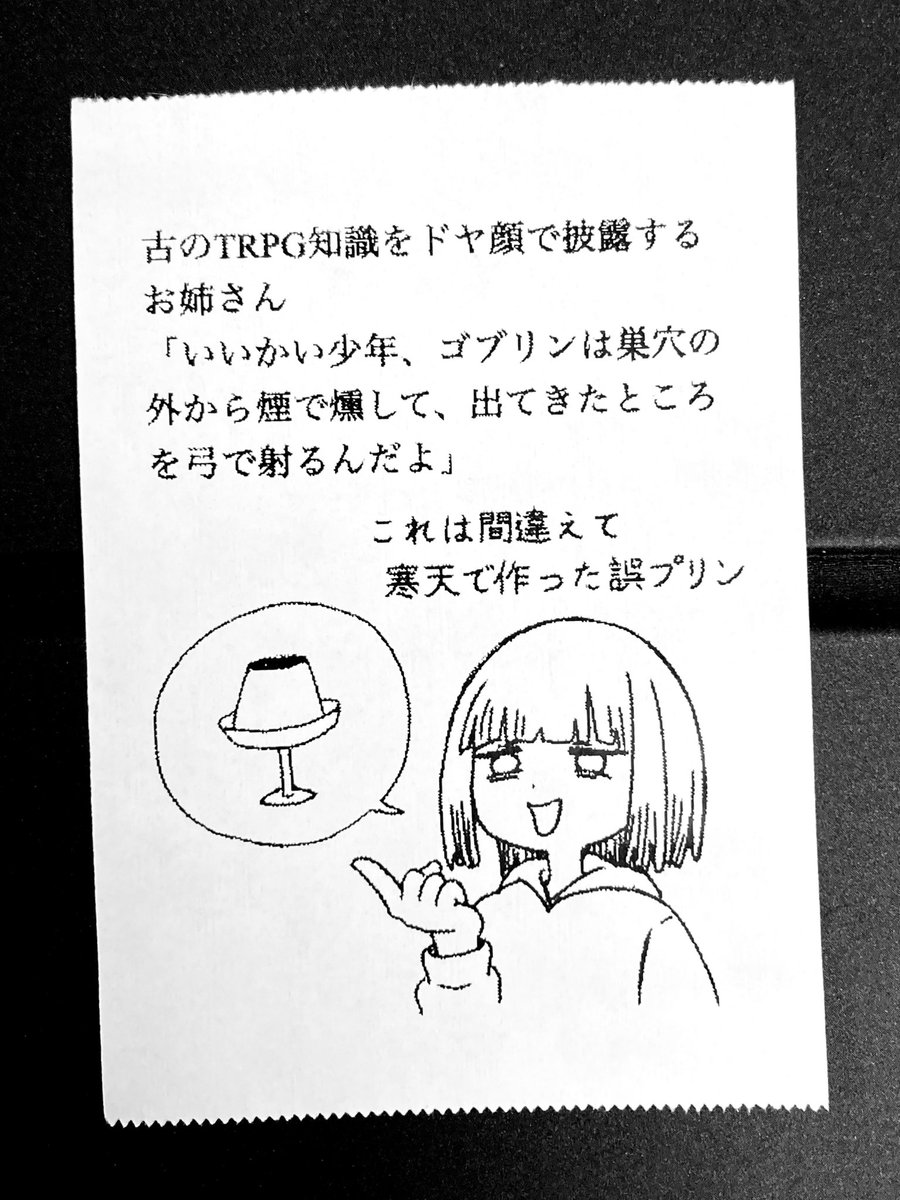 古のTRPG知識をドヤ顔で披露する
お姉さん
「いいかい少年、ゴブリンは巣穴の
外から煙で燻して、出てきたところ
を弓で射るんだよ」
これは間違えて
寒天で作った誤プリン